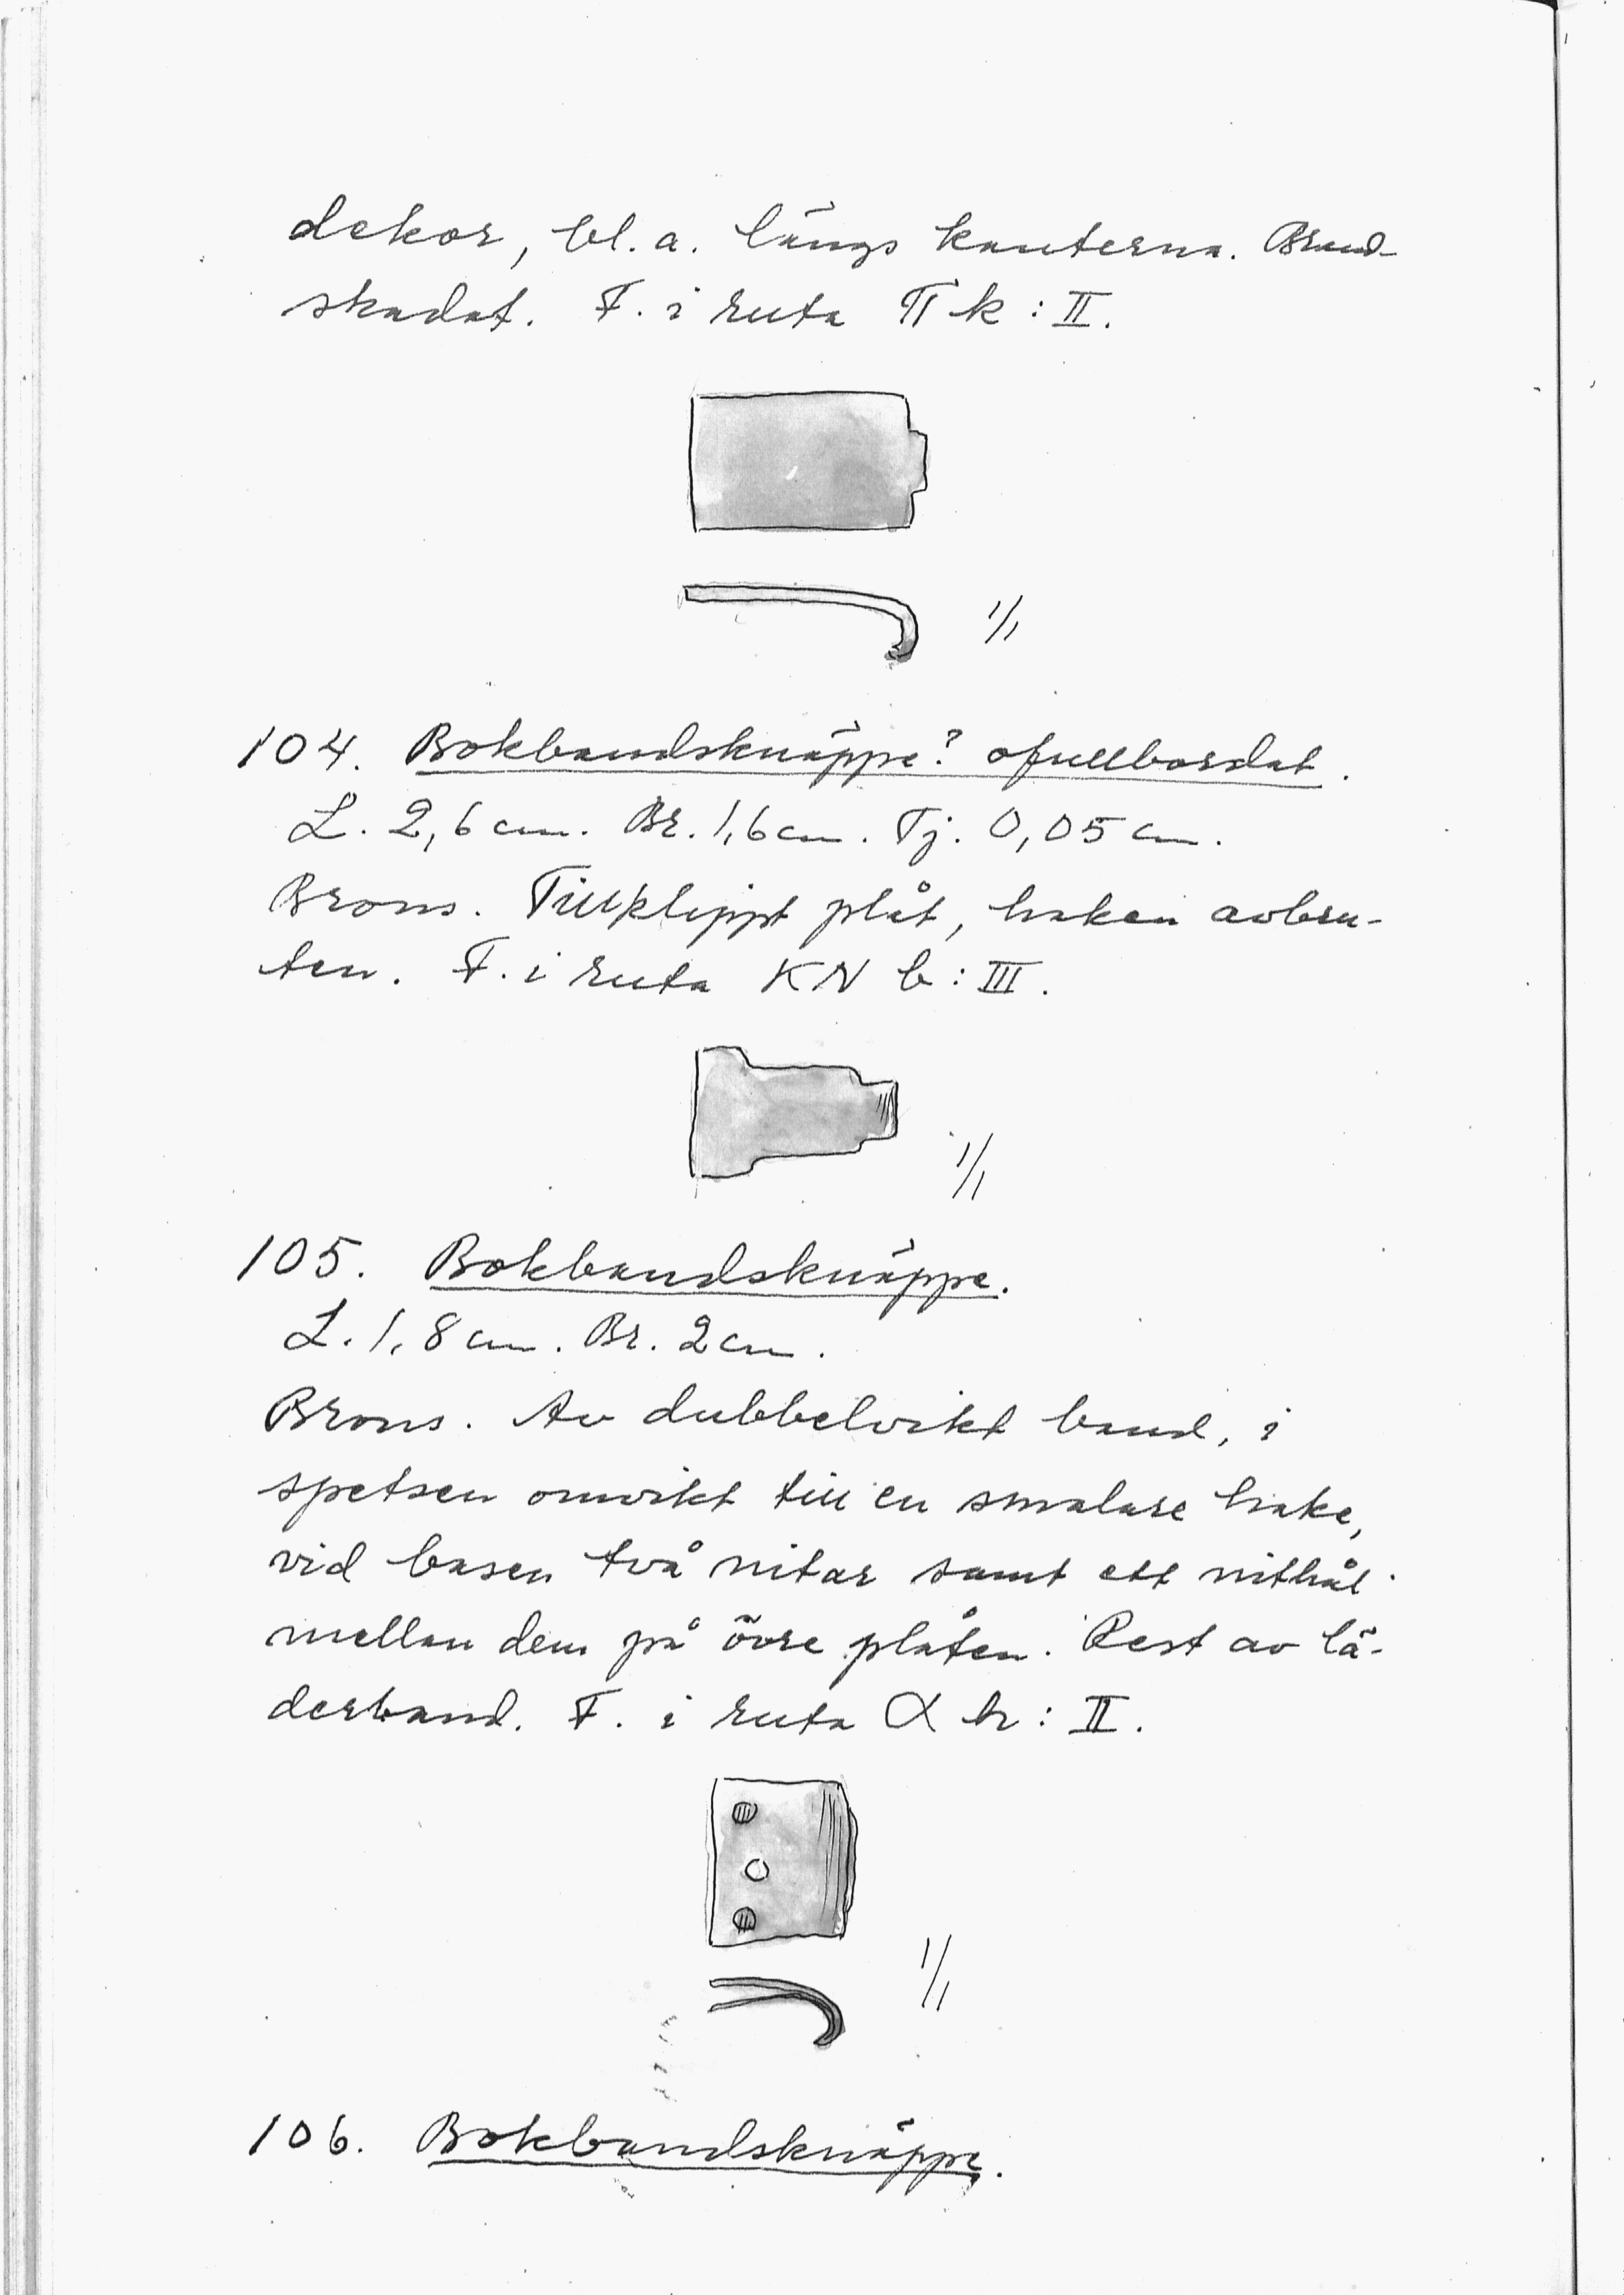 dekor, bl.a. längs kanterna. Brand-
skadat. F. i ruta π k : II.
1/1
104. Bokbandsknäppe? ofullbordat.
L. 2,6 cm. Br. 1,6 cm. Tj. 0,05 cm.
Brons. Tillklippt plåt, haken avbru-
ten. F. i ruta KN b : III.
1/1
105. Bokbandsknäppe.
L. 1,8 cm. Br. 2 cm.
Brons. Av dubbelvikt band, i
spetsen omvikt till en smalare hake,
vid basen två nitar samt ett nithål
mellan dem på övre plåten. Rest av lä-
derband. F. i ruta α h : II.
1/1
106. Bokbandsknäppe.